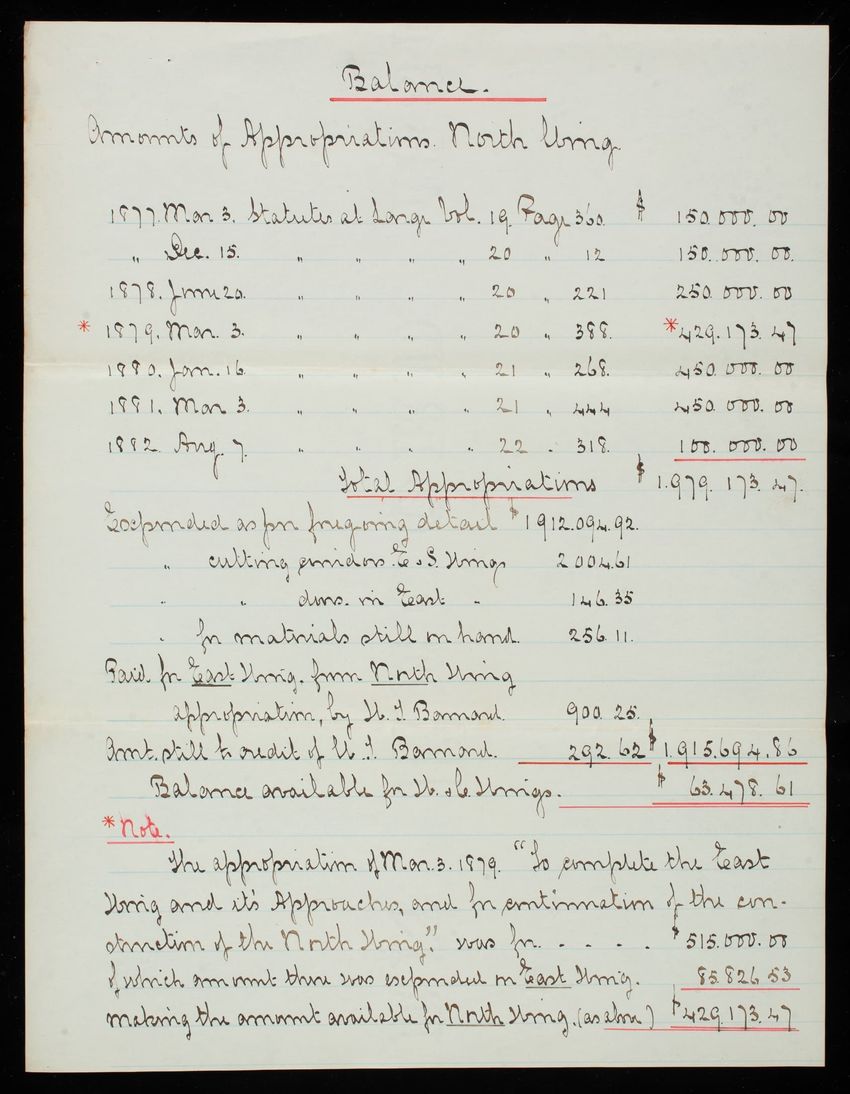 Balance.
Amounts of Appropriations. North Wing
1877. Mar 3. Statutes at Large Vol. 19. Page 360. $ 150.000.00
" Dec. 15. " " " " 20 " 12 150.000.00.
1878. June 20. " " " " 20 " 221 250.000.00
* 1879. Mar. 3. " " " " 20 " 388. *429.173.47
1880. Jan. 16. " " " " 21 " 268. 450.000.00
1881. Mar 3. " " " " 21 " 444 450.000.00
1882. Aug. 7. " " " " 22 " 318. 100.000.00
Total Appropriations $ 1.979.173.47.
Expended as per foregoing detail $ 1912.094.92.
" cutting corridors E. & S. Wings 2004.61
" " doors in East " 146.35
" for materials still on hand. 256.11.
Paid for East Wing. from North Wing
appropriation, by H. T. Barnard. 900.25.
Amt. still to credit of H. T. Barnard. 292.62 $ 1.915.694.86
Balance available for W. & C. Wings. $ 63.478.61
*Note.
The appropriation of Mar. 3. 1879. "To complete the East
Wing and it's Approaches, and for continuation of the con-
struction of the North Wing." was for. - - - - $ 515.000.00
of which amount there was expended on East Wing. 85.826 53
making the amount available for North Wing. (as above) $ 429.173.47